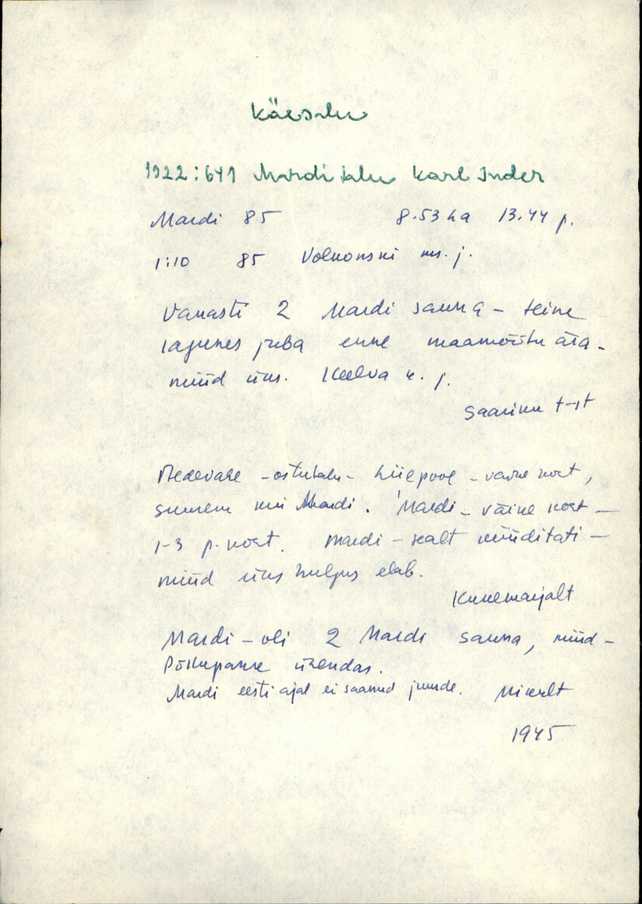 Käesalu
1922:641 Mardi talu Karl Inder
Mardi 85 8.53 ha 13.44 p.
1:10 85 Volkonski ms. j.
Vanasti 2 Mardi sauna – teine
lagunes juba enne maamõõtu ära –
nüüd üks. Keelva k. j.
Saariku t-st
– ostutalu – Hiiepoole – koht,
suurem kui Mardi. Mardi – väike koht –
1-3 p. koht. Mardi – sealt müüditati –
nüüd üks hulgus elab.
Kuuemarjalt
Mardi – oli 2 Mardi sauna, nüüd –
Põllupank ühendas.
Mardi eesti ajal ei saanud juurde.
1945